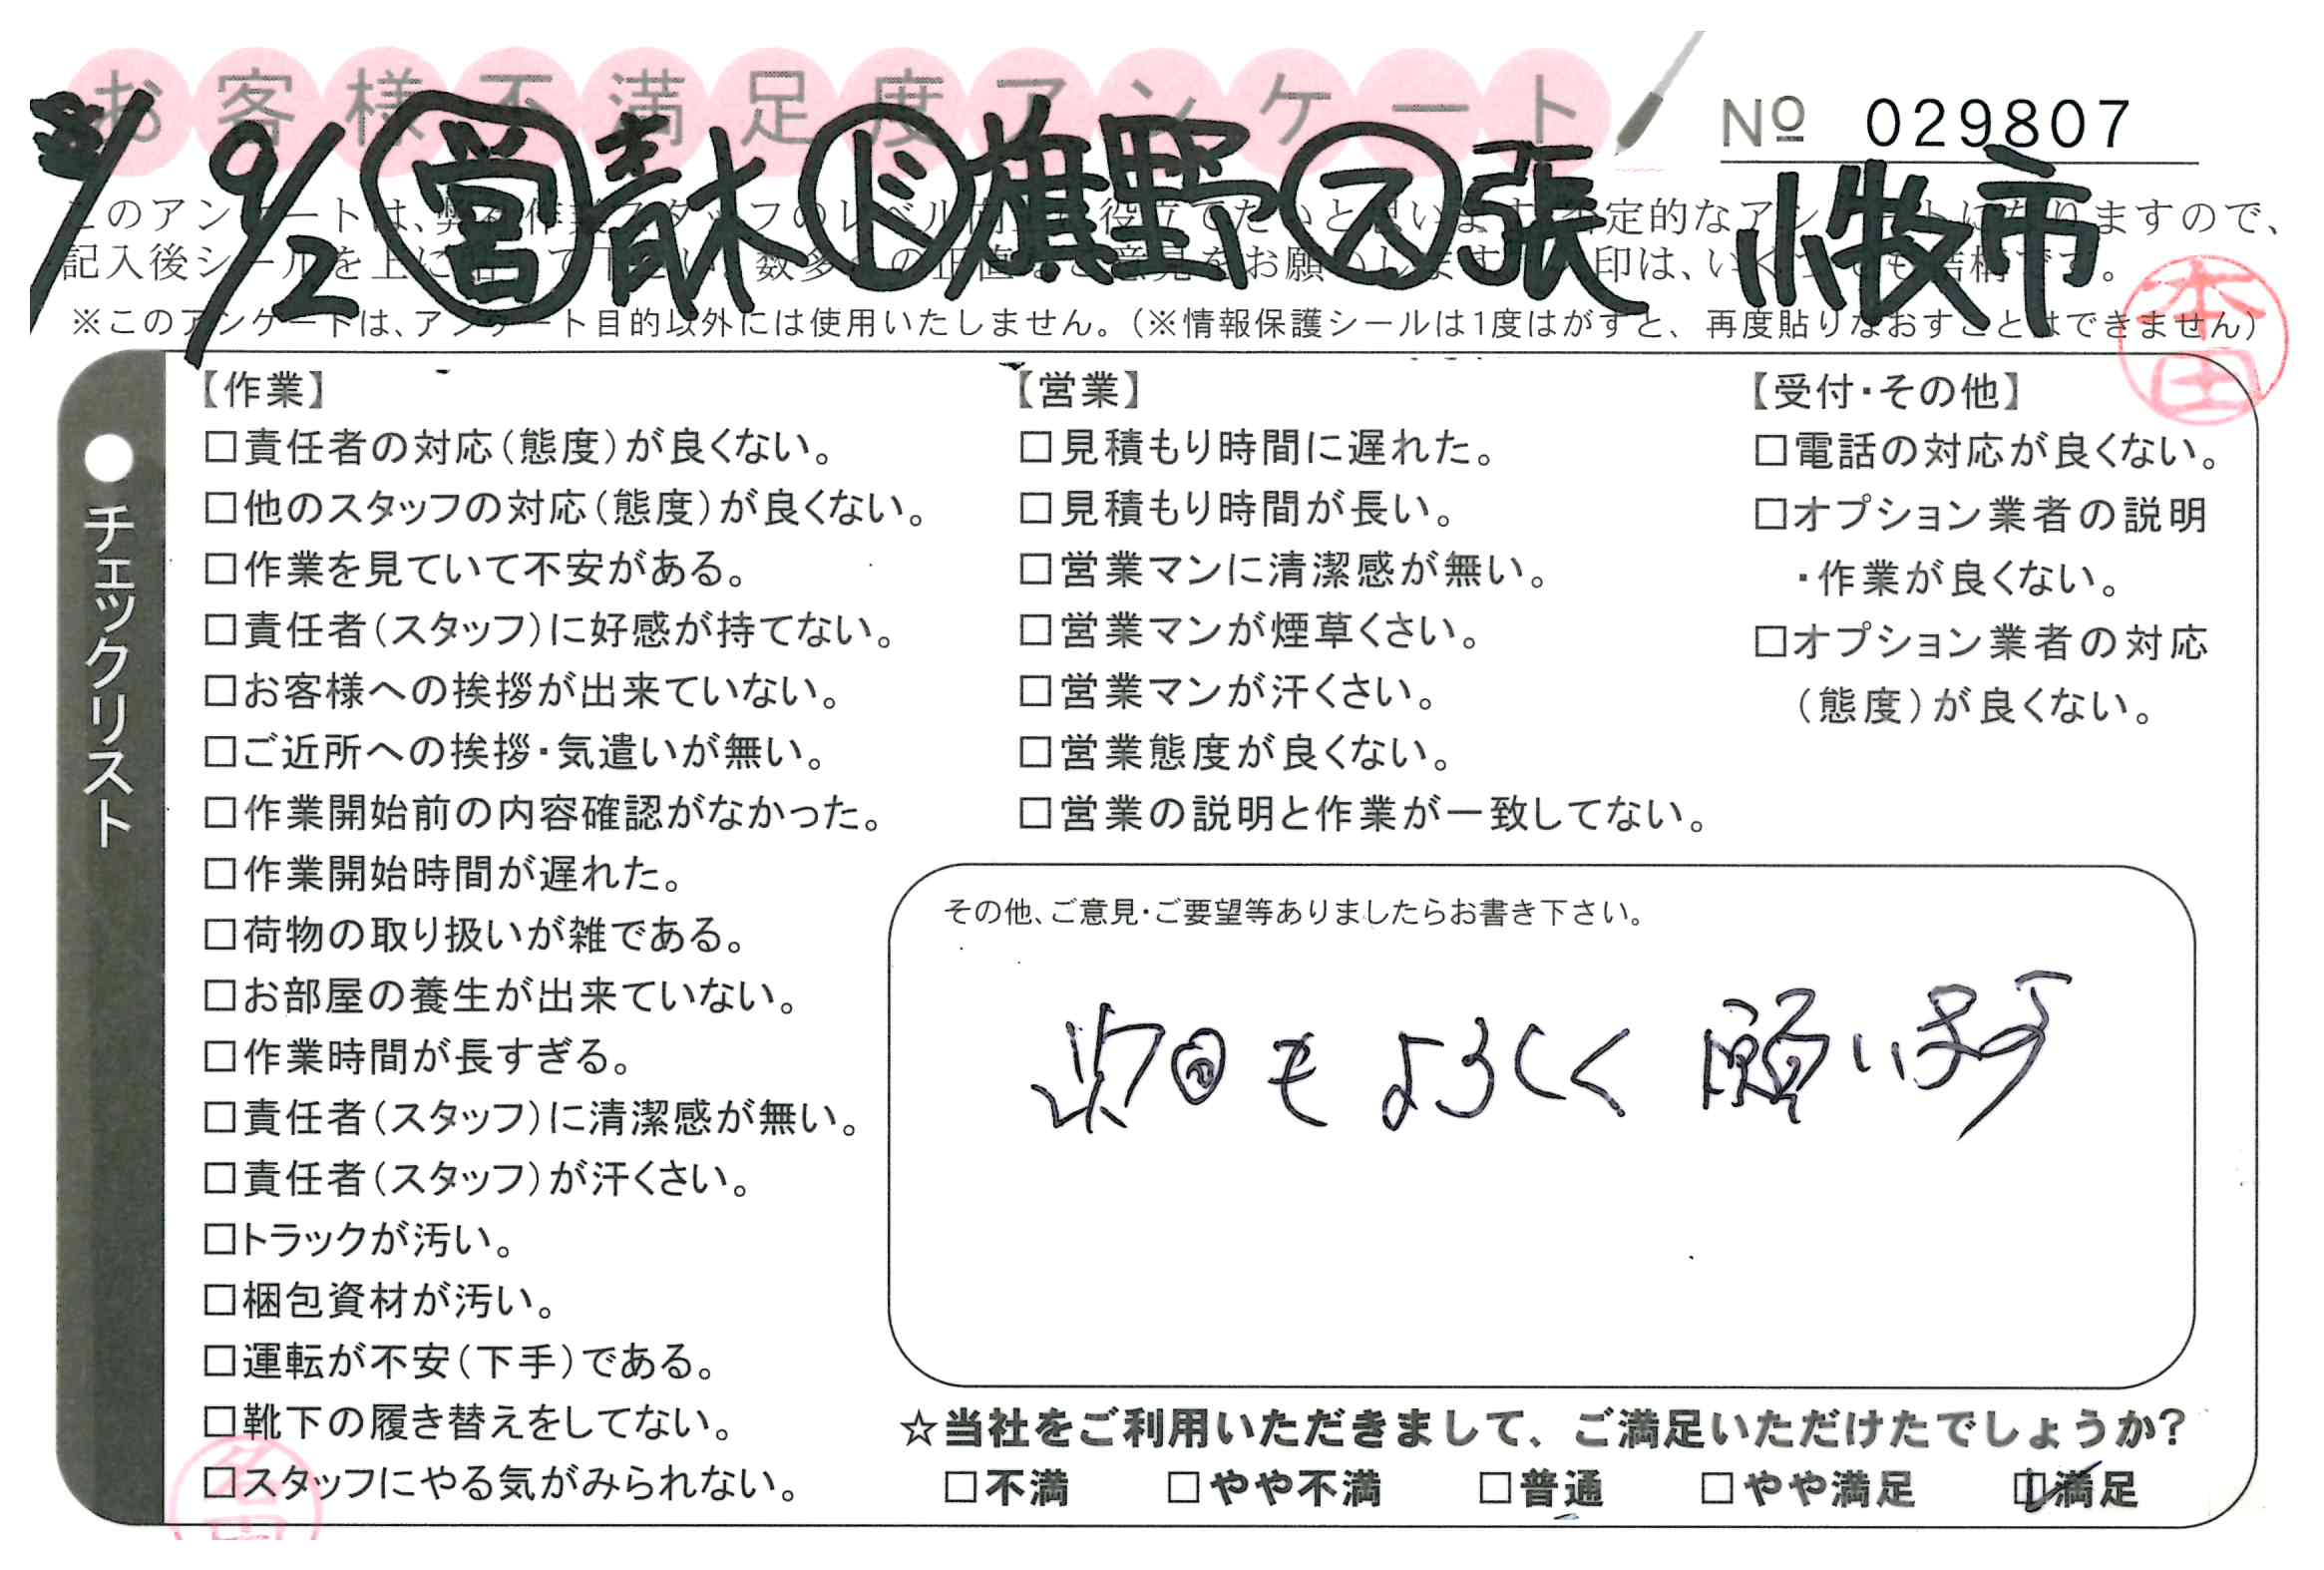 お客様不満足度アンケート
№ 029807
9/2 営 青木 ド 旗野 ス 張 小牧市
このアンケートは、弊社作業スタッフのレベル向上に役立てたいと思います。否定的なアンケートになりますので、
記入後シールを上に貼って下さい。数多くの正直なご意見をお願いします。レ印は、いくつでも結構です。
※このアンケートは、アンケート目的以外には使用いたしません。（※情報保護シールは1度はがすと、再度貼りなおすことはできません）
本田
●チェックリスト
【作業】
□責任者の対応（態度）が良くない。
□他のスタッフの対応（態度）が良くない。
□作業を見ていて不安がある。
□責任者（スタッフ）に好感が持てない。
□お客様への挨拶が出来ていない。
□ご近所への挨拶・気遣いが無い。
□作業開始前の内容確認がなかった。
□作業開始時間が遅れた。
□荷物の取り扱いが雑である。
□お部屋の養生が出来ていない。
□作業時間が長すぎる。
□責任者（スタッフ）に清潔感が無い。
□責任者（スタッフ）が汗くさい。
□トラックが汚い。
□梱包資材が汚い。
□運転が不安（下手）である。
□靴下の履き替えをしてない。
□スタッフにやる気がみられない。
【営業】
□見積もり時間に遅れた。
□見積もり時間が長い。
□営業マンに清潔感が無い。
□営業マンが煙草くさい。
□営業マンが汗くさい。
□営業態度が良くない。
□営業の説明と作業が一致してない。
【受付・その他】
□電話の対応が良くない。
□オプション業者の説明
・作業が良くない。
□オプション業者の対応
（態度）が良くない。
その他、ご意見・ご要望等ありましたらお書き下さい。
次回も よろしく 願います
☆当社をご利用いただきまして、ご満足いただけたでしょうか?
□不満 □やや不満 □普通 □やや満足 ☑満足